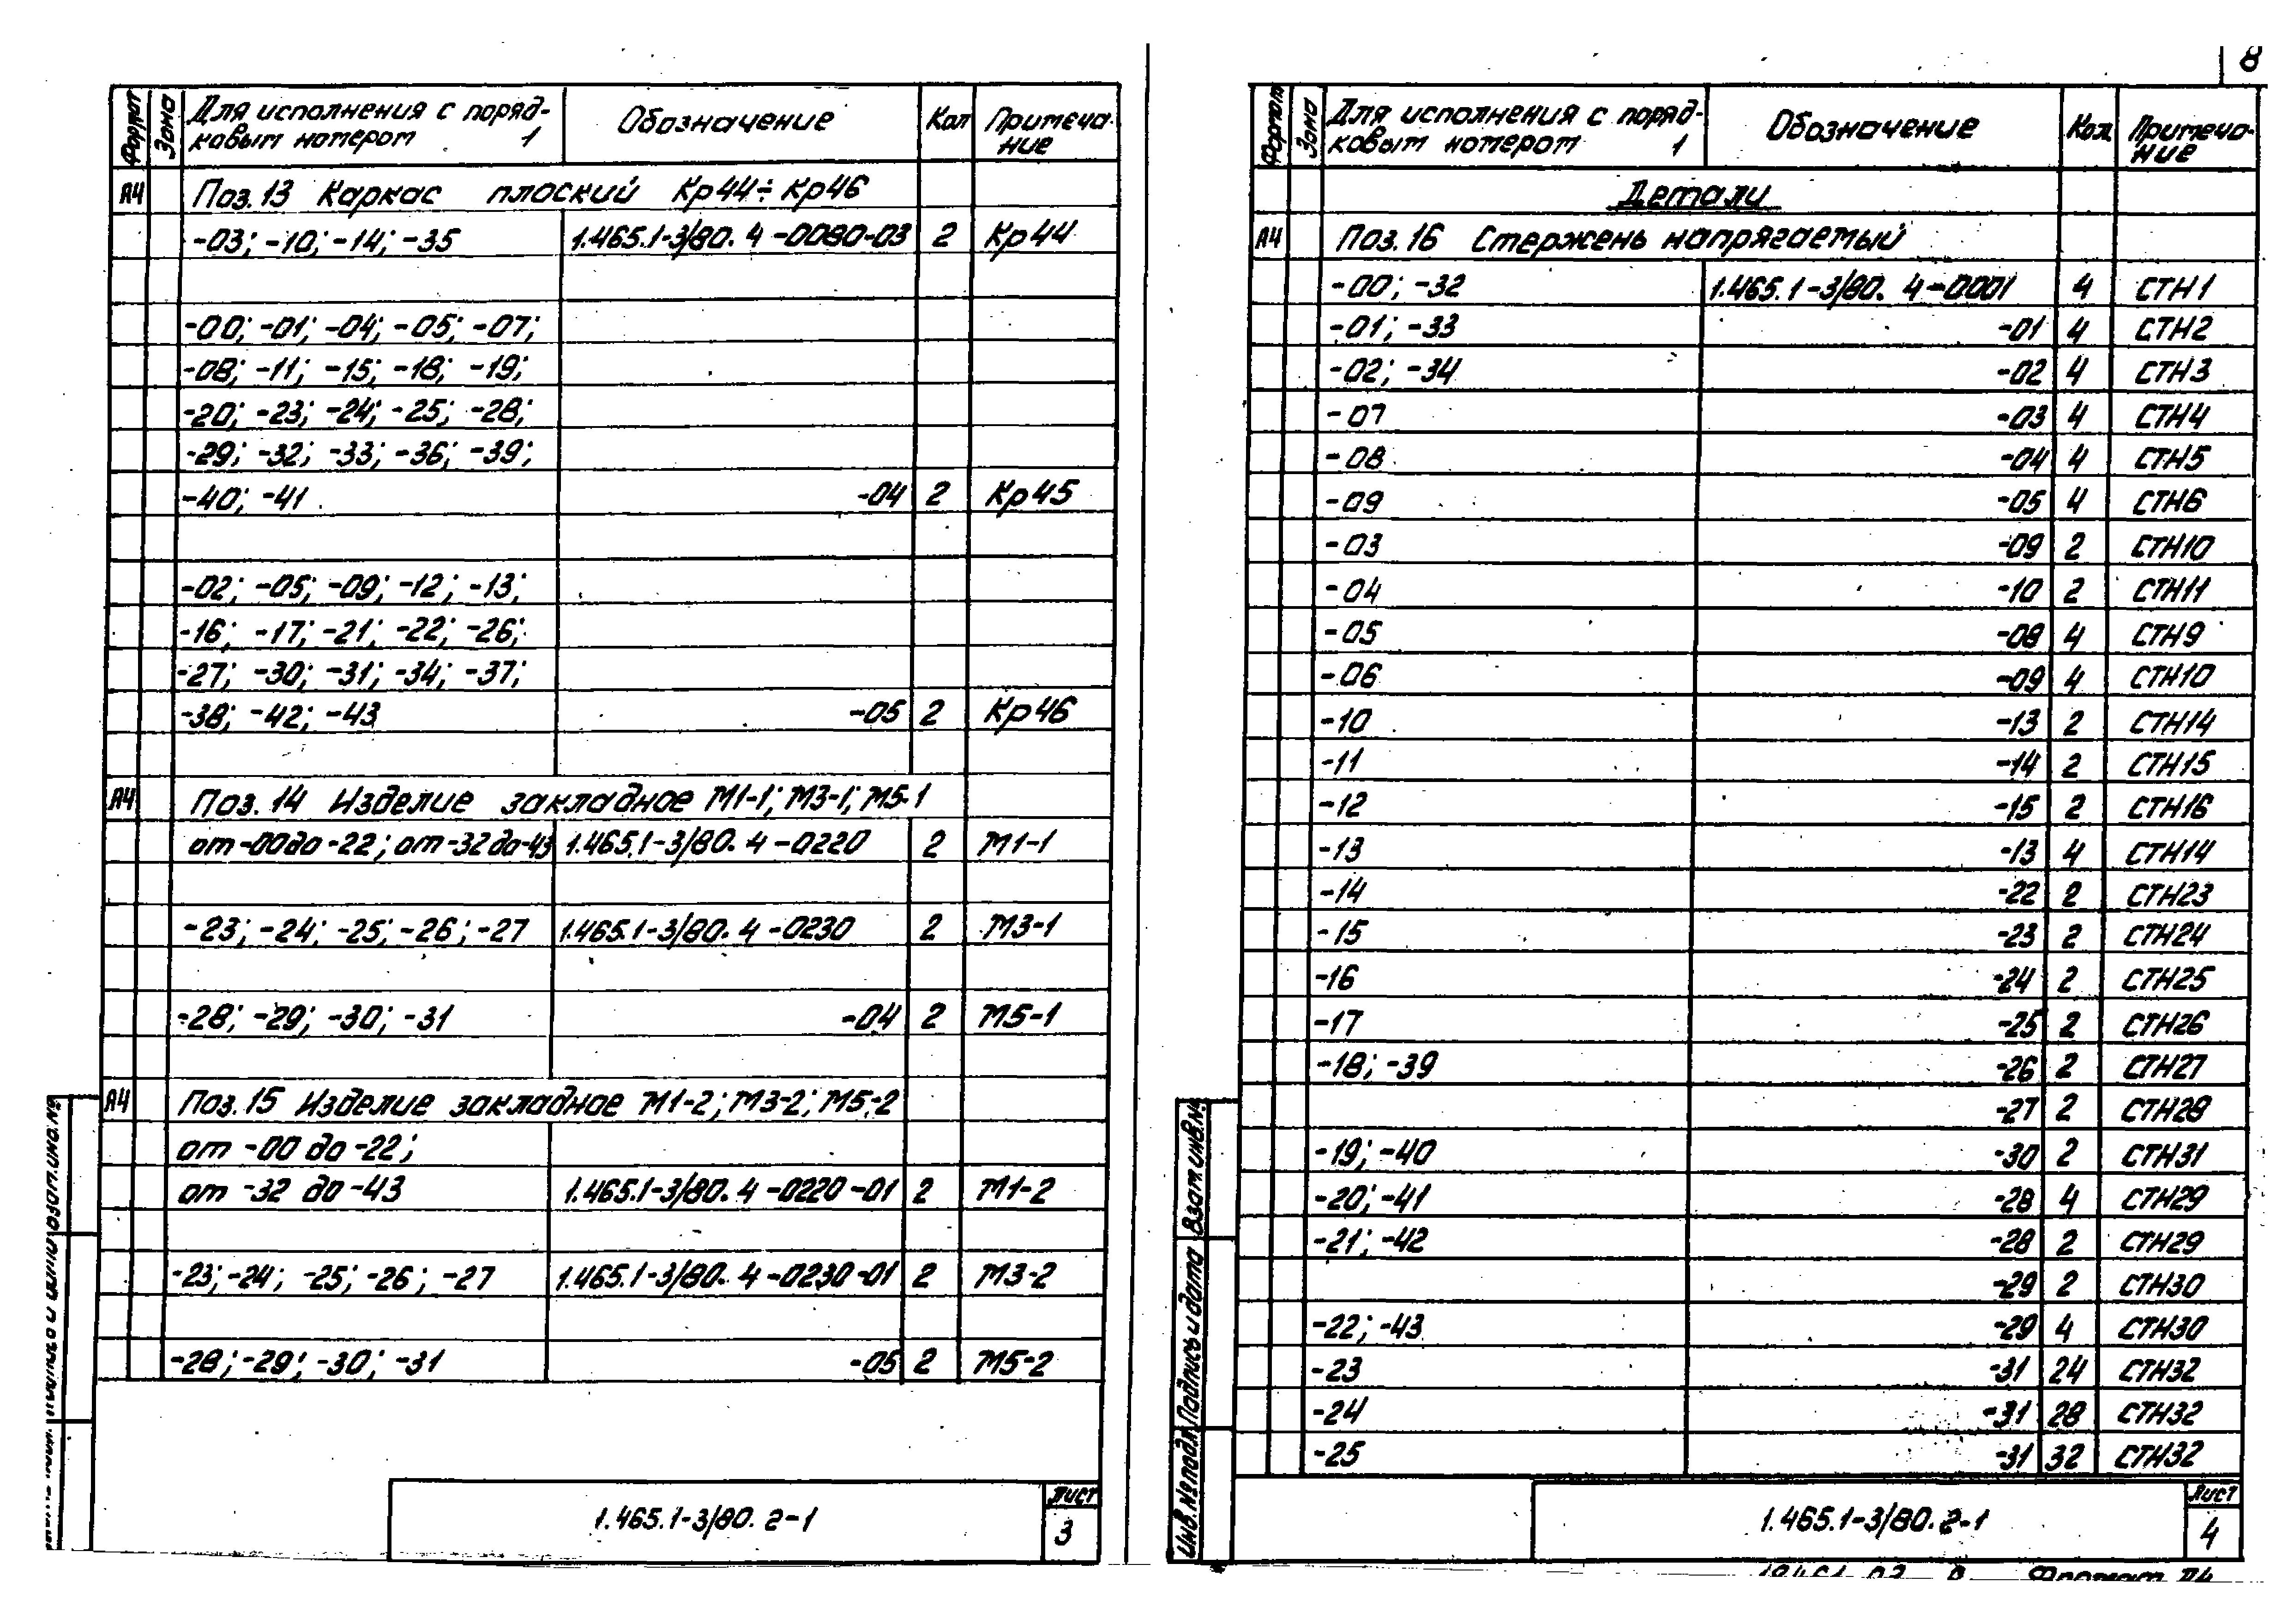 8
Формат Зона Для исполнения с поряд- Обозначение Кол Примеча-
ковым номером 1 ние
А4 Поз.13 Каркас плоский Кр44÷Кр46
-03; -10; -14; -35 1.465.1-3/80. 4 -0080-03 2 Кр44
-00; -01; -04; -05; -07;
-08; -11; -15; -18; -19;
-20; -23; -24; -25; -28;
-29; -32; -33; -36; -39;
-40; -41 -04 2 Кр45
-02; -05; -09; -12; -13;
-16; -17; -21; -22; -26;
-27; -30; -31; -34; -37;
-38; -42; -43 -05 2 Кр46
А4 Поз.14 Изделие закладное М1-1; М3-1; М5-1
от -00 до -22; от -32 до -43 1.465.1-3/80. 4 -0220 2 М1-1
-23; -24; -25; -26; -27 1.465.1-3/80. 4 -0230 2 М3-1
-28; -29; -30; -31 -04 2 М5-1
А4 Поз.15 Изделие закладное М1-2; М3-2; М5-2
от -00 до -22;
от -32 до -43 1.465.1-3/80. 4 -0220 -01 2 М1-2
-23; -24; -25; -26; -27 1.465.1-3/80. 4 -0230 -01 2 М3-2
-28; -29; -30; -31 -05 2 М5-2
1.465.1-3/80. 2-1 Лист
3
Формат Зона Для исполнения с поряд- Обозначение Кол. Примеча-
ковым номером 1 ние
Детали
А4 Поз.16 Стержень напрягаемый
-00; -32 1.465.1-3/80. 4-0001 4 СТН1
-01; -33 -01 4 СТН2
-02; -34 -02 4 СТН3
-07 -03 4 СТН4
-08 -04 4 СТН5
-09 -05 4 СТН6
-03 -09 2 СТН10
-04 -10 2 СТН11
-05 -08 4 СТН9
-06 -09 4 СТН10
-10 -13 2 СТН14
-11 -14 2 СТН15
-12 -15 2 СТН16
-13 -13 4 СТН14
-14 -22 2 СТН23
-15 -23 2 СТН24
-16 -24 2 СТН25
-17 -25 2 СТН26
-18; -39 -26 2 СТН27
-27 2 СТН28
-19; -40 -30 2 СТН31
-20; -41 -28 4 СТН29
-21; -42 -28 2 СТН29
-29 2 СТН30
-22; -43 -29 4 СТН30
-23 -31 24 СТН32
-24 -31 28 СТН32
-25 -31 32 СТН32
Инв.№подл. Подпись и дата Взам.инв.№
1.465.1-3/80. 2-1 Лист
4
Формат А4